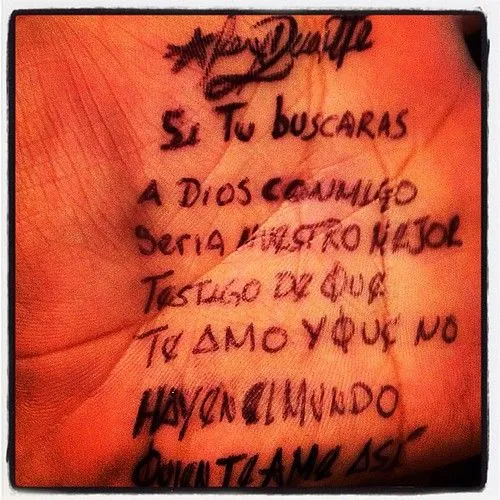 Duarte
Si Tu buscaras
A Dios conmigo
Seria nuestro mejor
Testigo de que
Te amo y que no
Hay en el mundo
Quien te ame asi